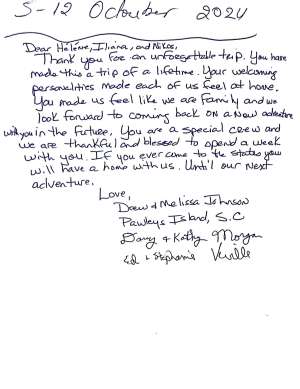 5-12 October 2024
Dear Helene, Iliana, and Nikos,
Thank you for an unforgettable trip. You have
made this a trip of a lifetime. Your welcoming
personalities made each of us feel at home.
You made us feel like we are family and we
look forward to coming back on a new adventure
with you in the future. You are a special crew and
we are thankful and blessed to spend a week
with you. If you ever come to the states you
will have a home with us. Until our next
adventure.
Love,
Drew & Melissa Johnson
Pawleys Island, S.C
Dany & Kathy Morgan
Ed & Stephanie